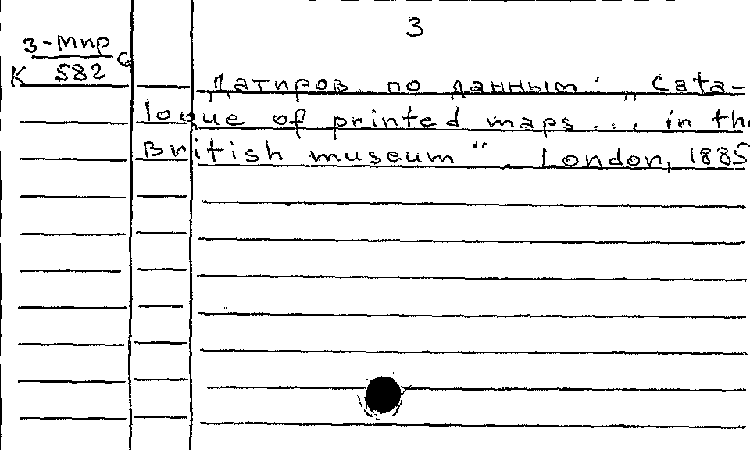 3
3-Мир
К 582
Датиров. по данным: „Cata=
logue of printed maps... in the
British museum“. London, 1885